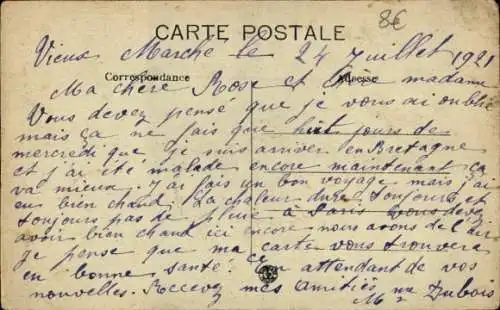 8€
CARTE POSTALE
Vieux Marché le 24 Juillet 1921
Correspondance
Adresse
Ma chère Rose et chère madame
Vous devez pensé que je vous ai oublié
mais ça ne fais que huit jours de
mercredi que je suis arriver en Bretagne
et j'ai été malade encore maintenant ça
va mieux. J'ai fais un bon voyage mais j'ai
eu bien chaud. La chaleur dure toujours et
toujours pas de pluie à Paris vous devez
avoir bien chaud ici encore nous avons de l'air
je pense que ma carte vous trouvera
en bonne santé. En attendant de vos
nouvelles. Recevez mes amitiés Mme Dubois